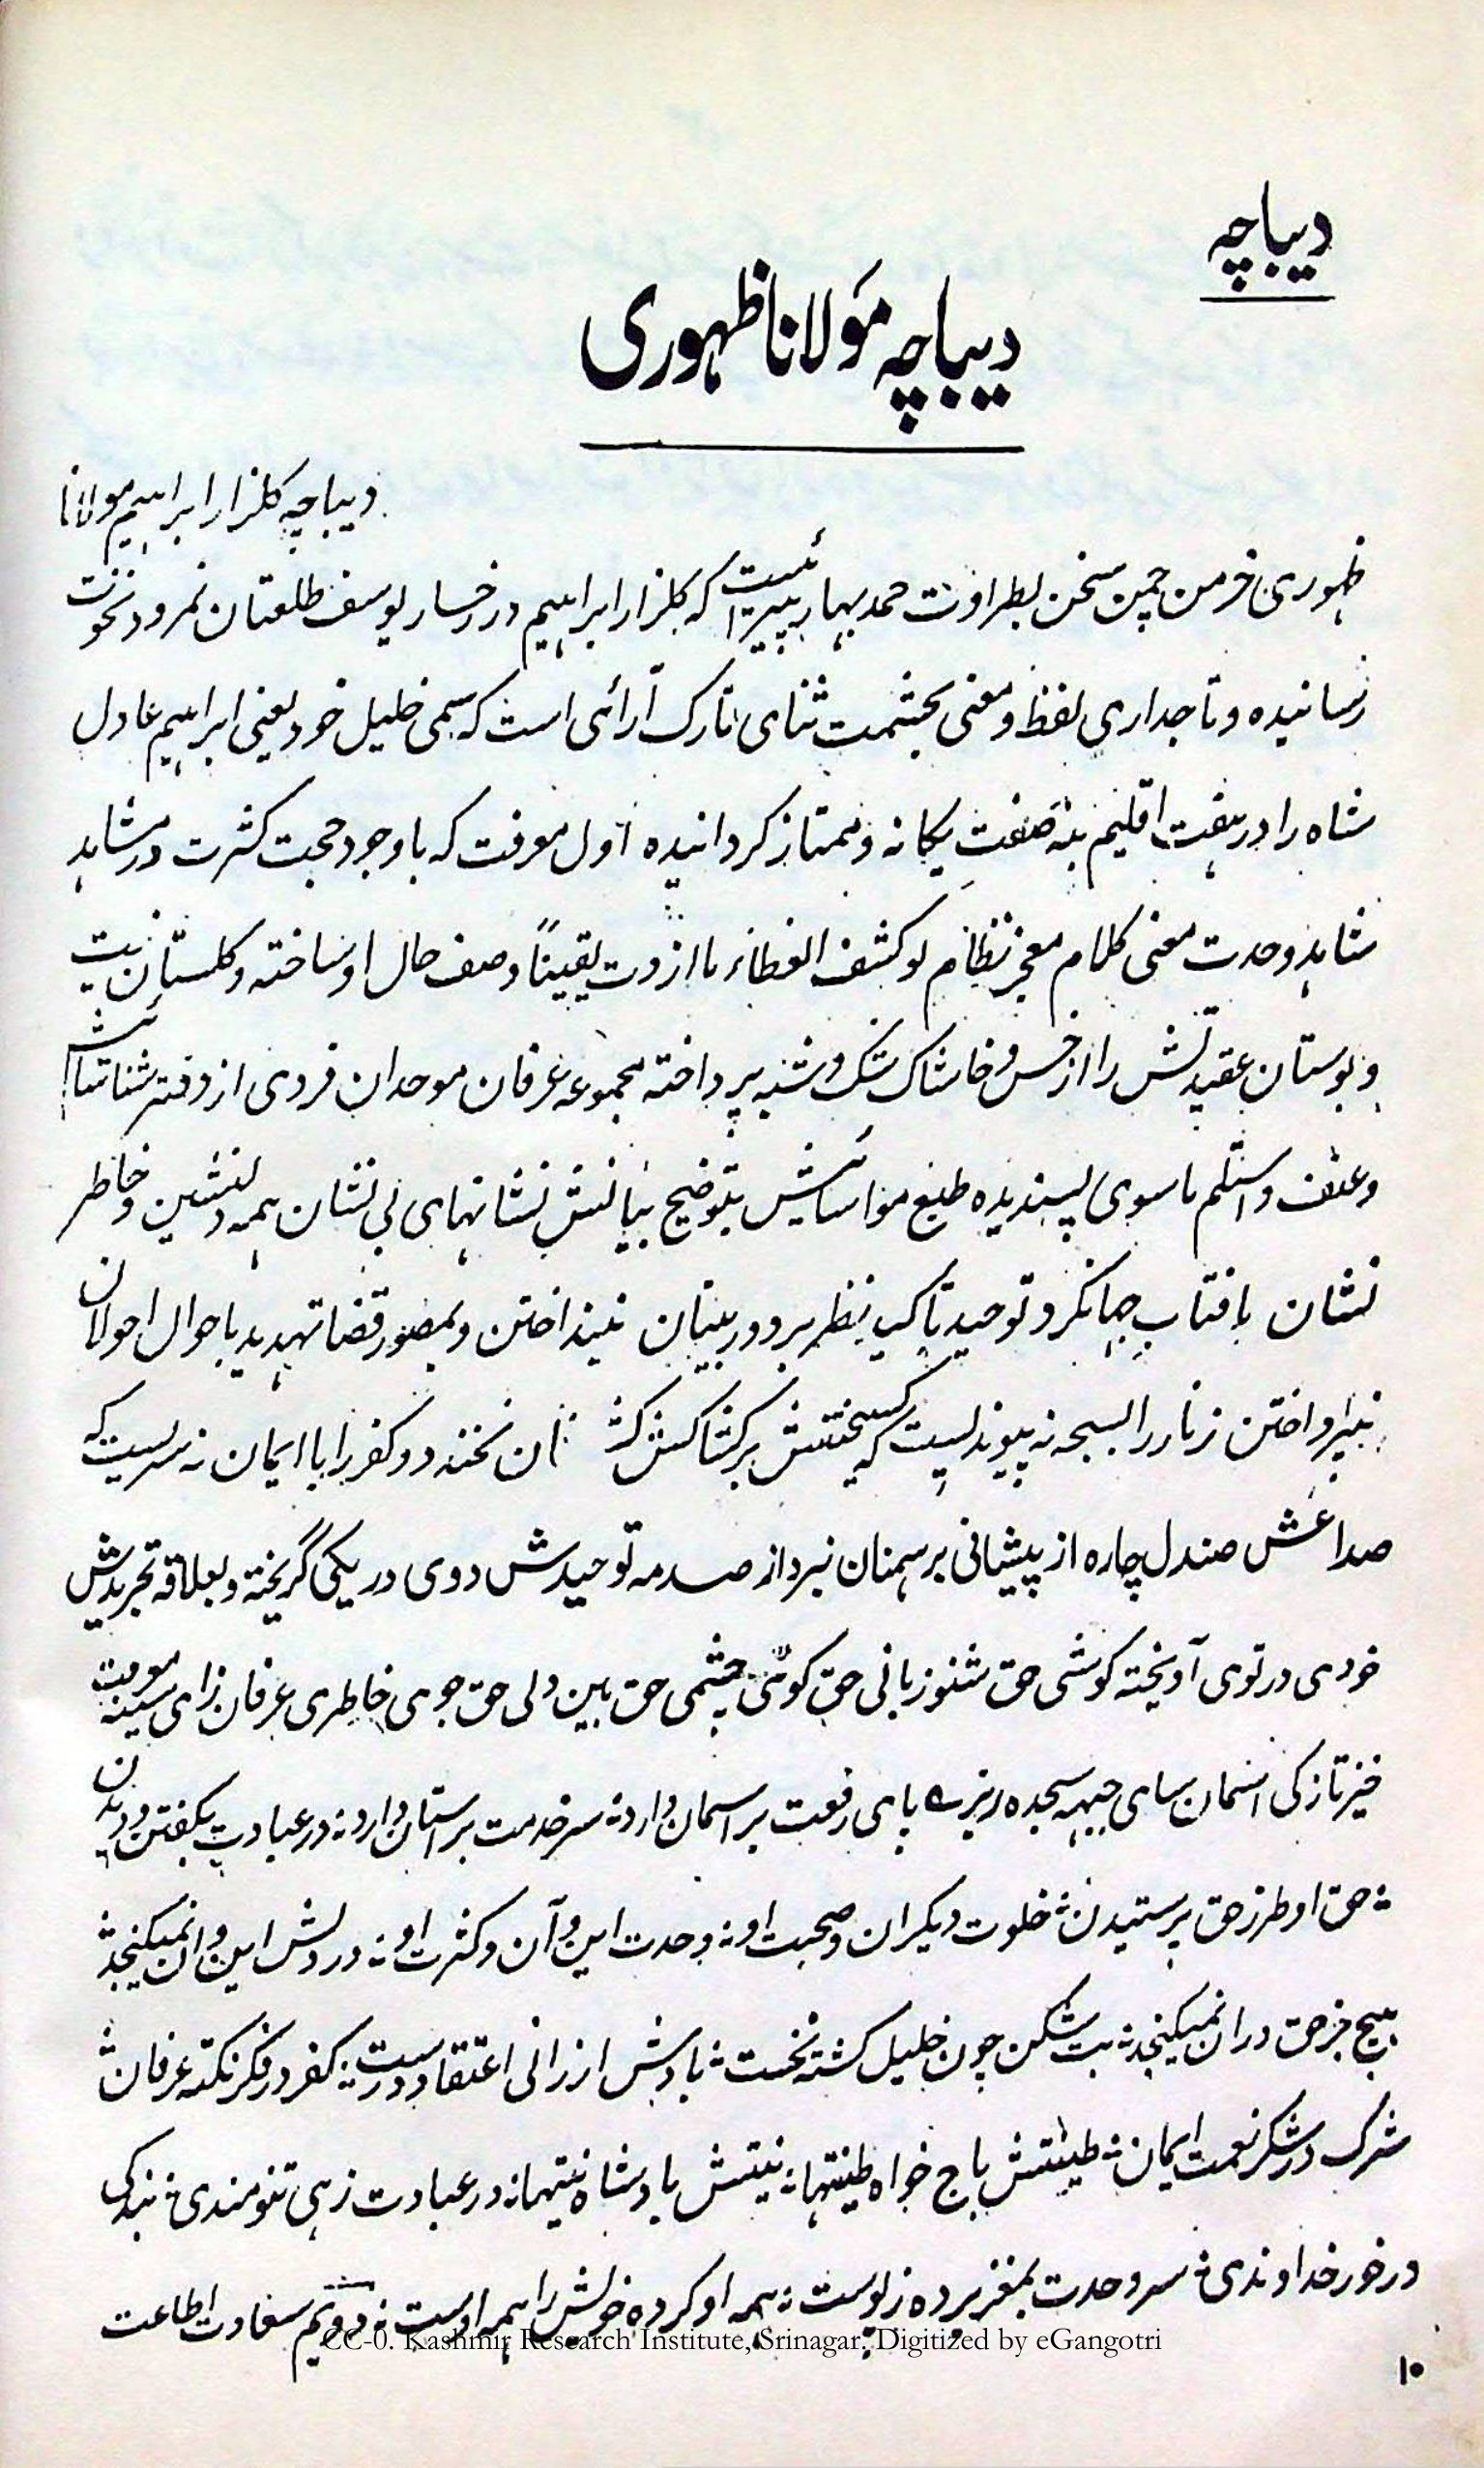 دیباچہ
دیباچہ مولانا ظہوری
دیباچہ کلزار ابراہیم مولانا
ظہوری خرمن چمن سخن بطراوت حمد بہار پیرائیست کہ کلزار ابراہیم در رخسار یوسف طلعتان نمرود نخوت
رسانیدہ و تاجداری لفظ و معنی بحشمت ثنای تارک آرائی است کہ سمی خلیل خود یعنی ابراہیم عادل
شاہ را در ہفت اقلیم بنہ صفت یکانہ و ممتاز کردانیدہ اول معرفت کہ باوجود حجبت کثرت در مشاہد
شاہد وحدت معنی کلام معجز نظام لو کشف الغطاء ما ازدت یقیناً وصف حال او ساختہ و کلستان نیت
و بوستان عقیدتش را از خس و خاشاک شک و شبہ پرداختہ مجموعہ عرفان موحدان فردی از دفتر شناسائیش
و عنف و اسلم ماسوی پسندیدہ طبع مواسائیش بتوضیح بیانش نشانہای بی نشان ہمہ دلنشین و خاطر
نشان بافتاب جہانکرد توحید تاکید نظر بر دوربینان نینداختن و بمصور قضا تہدید باحوال احولان
نپرداختن زنار را بسبحہ نہ پیوندیست کہ کسیختنش بر کشاکش نخندد و کفر را با ایمان نہ سریست کہ
صداعش صندل چارہ از پیشانی برہمنان نبرد از صدمہ توحیدش دوی در یکی گریختہ و بعلاقہ تجریدش
خودی در توی آویختہ کوشی حق شنو زبانی حق کوئی چشمی حق بین دلی حق جوی خاطری عرفان زای سینہ معرفت
خیز تازکی اسمان سای جبہہ سجدہ ریزے پای رفعت بر اسمان دارد ؛ سر خدمت بر استان دارد ؛ در عبادت بکفتن و دیدن
؛ حق او طرز حق پرستیدن ؛ خلوت دیکران و صحبت او ؛ وحدت این و آن و کثرت او ؛ در دلش این و ان نمیکنجد ؛
ہیچ جز حق در ان نمیکنجد ؛ بت شکن چون خلیل کشتہ نخست ؛ بادش ارزانی اعتقاد درست ؛ کفر در فکر نکتہ عرفان ؛
شرک در شکر نعمت ایمان ؛ طینتش باج خواہ طینتہا ؛ نیتش بادشاہ نیتہا ؛ در عبادت زہی تنومندی ؛ بندکی
در خور خداوندی ؛ سر وحدت بمغز بردہ ز پوست ؛ ہمہ او کردہ خویش را ہمہ اوست ؛ دویم سعادت اطاعت
CC-0. Kashmir Research Institute, Srinagar. Digitized by eGangotri
۱۰